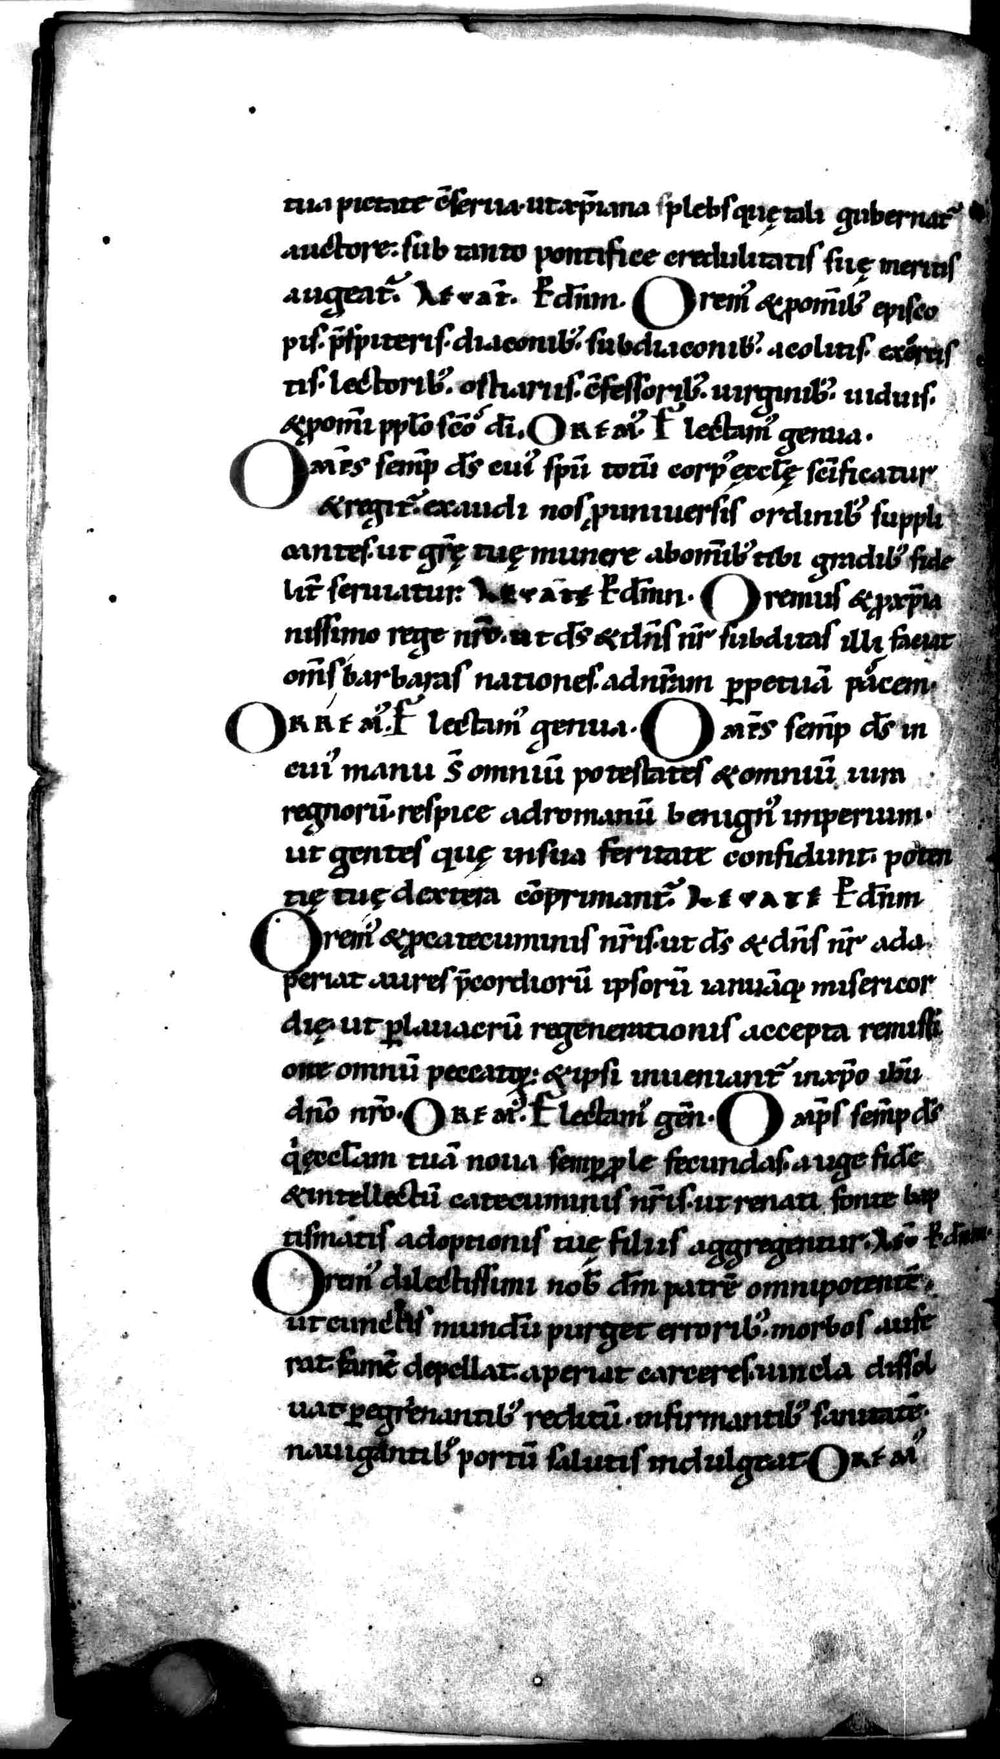 tua pietate c̄serua. ut xp̄iana plebs quę tali gubernat᷑
auctore. sub tanto pontifice credulitatis suę meritis
augeat᷑. Leuat̄. P̄ dn̄m. Orem᷒ & ꝓ om̄ib᷒ episco
pis. p̄sbiteris. diaconib᷒. subdiaconib᷒. acolitis. exorcis
tis. lectorib᷒. ostiariis. c̄fessorib᷒. uirginib᷒. uiduis.
& ꝓ om̄i pplo sc̄o di. Orem᷒. F lectam᷒ genua.
Om̄ps semp̄ ds̄ cui᷒ spū totū corp᷒ ęcclę sc̄ificatur
& regit᷑. exaudi nos ꝓ uniuersis ordinib᷒ suppli
cantes. ut gr̄ę tuę munere ab om̄ib᷒ tibi gradib᷒ fide
lit̄ seruiatur. Leuate P̄ dn̄m. Oremus & ꝓ xp̄ia
nissimo rege nr̄o. ut ds̄ & dn̄s nr̄ subditas illi faciat
om̄s barbaras nationes. ad nr̄am ꝑpetuā pacem.
Orem᷒. F lectam᷒ genua. Om̄ps semp̄ ds̄ in
cui᷒ manu s̄ omniū potestates & omniū iura
regnorū. respice ad romanū benign᷒ imperium.
ut gentes quę in sua feritate confidunt. poten
tię tuę dextera cōprimant᷑. Leuate P̄ dn̄m
Orem᷒ & ꝓ catecuminis nr̄is. ut ds̄ & dn̄s nr̄ ada
periat aures p̄cordiorū ipsorū ianuāq; misericor
dię. ut ꝑ lauacrū regenerationis accepta remissi
one omniū peccatoꝝ. & ipsi inueniant᷑ in xp̄o ihū
dn̄o nr̄o. Orem᷒. F lectam᷒ gen̄. Om̄ps semp̄ ds̄
q̇ ęccl̄am tuā noua semꝑ ꝓle fecundas. auge fidē
& intellectū catecuminis nr̄is. ut renati fonte bap
tismatis adoptionis tuę filiis aggregentur. P̄ dn̄m.
Orem᷒ dilectissimi nob̄ dm̄ patrē omnipotentē.
ut cunctis mundū purget errorib᷒. morbos aufe
rat famē depellat. aperiat carceres. uincla dissol
uat. ꝑegrenantib᷒ reditū. infirmantib᷒ sanitatē.
nauigantib᷒ portū salutis indulgeat. Orem᷒